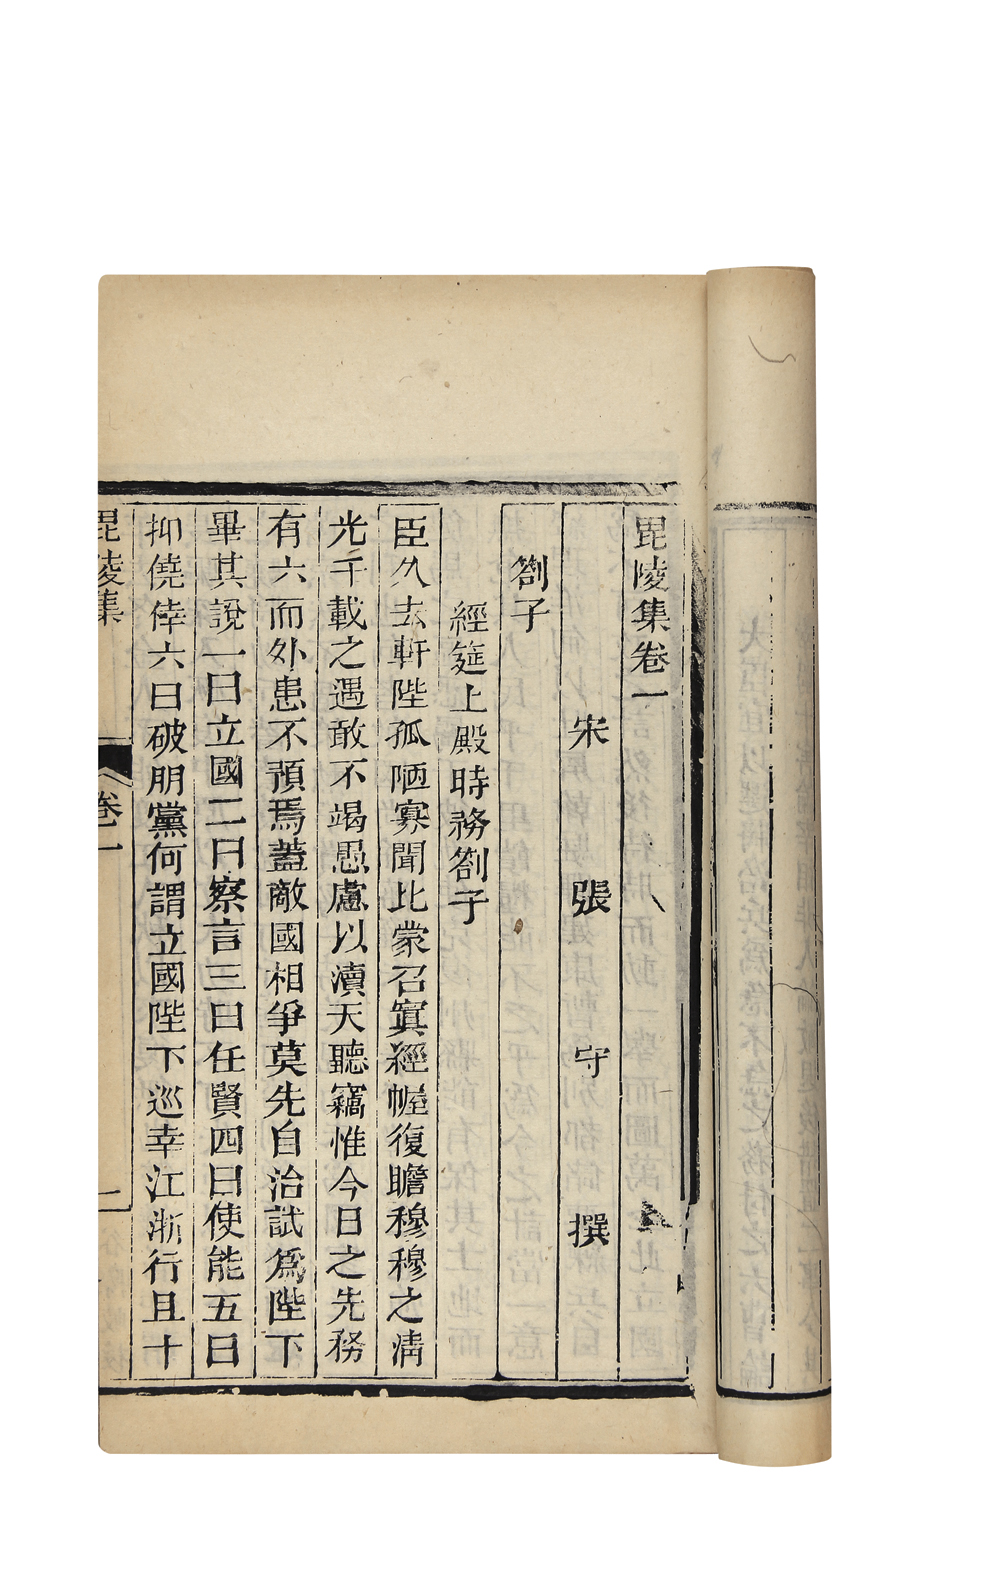 毘陵集卷一
宋 張 守 撰
劄子
經筵上殿時務劄子
臣久去軒陛孤陋寡聞比蒙召寘經幄復瞻穆穆之清
光千載之遇敢不竭愚慮以瀆天聽竊惟今日之先務
有六而外患不預焉蓋敵國相爭莫先自治試爲陛下
畢其說一曰立國二曰察言三曰任賢四曰使能五曰
抑僥倖六曰破朋黨何謂立國陛下巡幸江浙行且十
毘陵集 卷一 一